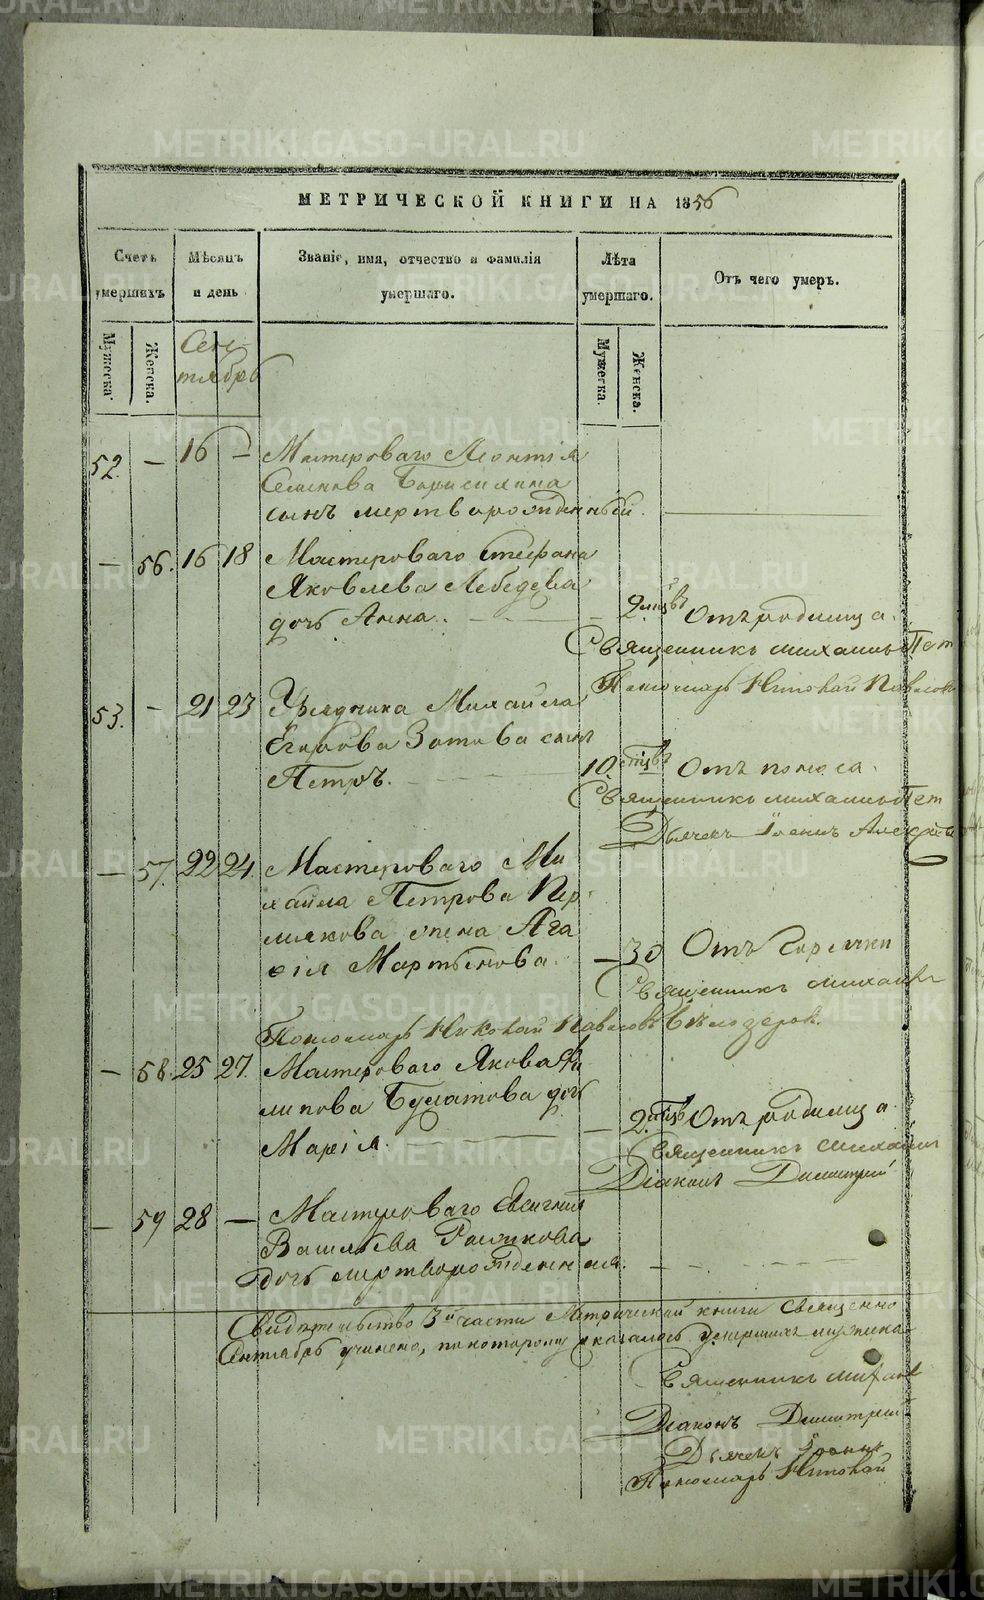 МЕТРИЧЕСКОЙ КНИГИ НА 1856
Счетъ умершихъ
Мѣсяцъ и день
Званіе, имя, отчество и фамилія умершаго.
Лѣта умершаго.
Отъ чего умеръ.
Мужеска.
Женска.
Сен-
тябрь
Мужеска.
Женска.
52. — 16 — Мастероваго Леонтія
Семенова
сынъ мертворожденный.
— 56. 16 18 Мастероваго Стефана
Яковлева Лебедева
дочь Анна. 2. мцвъ Отъ родимца.
Священникъ Михаилъ Пет
Пономарь Николай Павловъ
53. — 21 23 Урядника Михайла
Егорова Зотова сынъ
Петръ. 10. мцвъ Отъ поноса.
Священникъ Михаилъ Пет
Дьячекъ Іоаннъ
— 57. 22 24. Мастероваго Ми
хайла Петрова Пер-
мякова жена Ага
ѳія Мартынова. — 30 Отъ горячки
Священникъ Михаилъ
Пономарь Николай Павловъ
— 58. 25 27. Мастероваго Якова Фи
липова Булатова дочь
Марія. — 2. мцвъ Отъ родимца.
Священникъ Михаил
Діаконъ Димитрій
— 59 28 — Мастероваго Евгенія
Васильева
дочь мертворожденная.
Свидѣтельство 3й части Метрической книги Священно
Сентябрь учинено, по которому оказалось умершихъ мужеска
Священникъ Михаил
Діаконъ Димитрій
Дьячекъ Іоаннъ
Пономарь Николай
METRIKI.GASO-URAL.RU